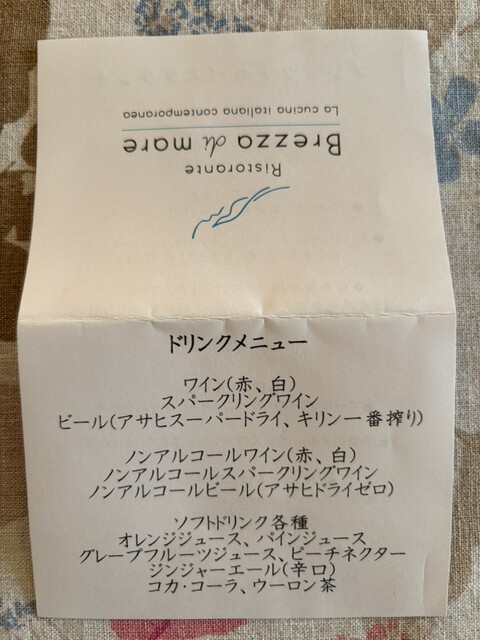 Ristorante
Brezza di mare
La cucina italiana contemporanea
ドリンクメニュー
ワイン(赤、白)
スパークリングワイン
ビール(アサヒスーパードライ、キリン一番搾り)
ノンアルコールワイン(赤、白)
ノンアルコールスパークリングワイン
ノンアルコールビール(アサヒドライゼロ)
ソフトドリンク各種
オレンジジュース、パインジュース
グレープフルーツジュース、ピーチネクター
ジンジャーエール(辛口)
コカ・コーラ、ウーロン茶